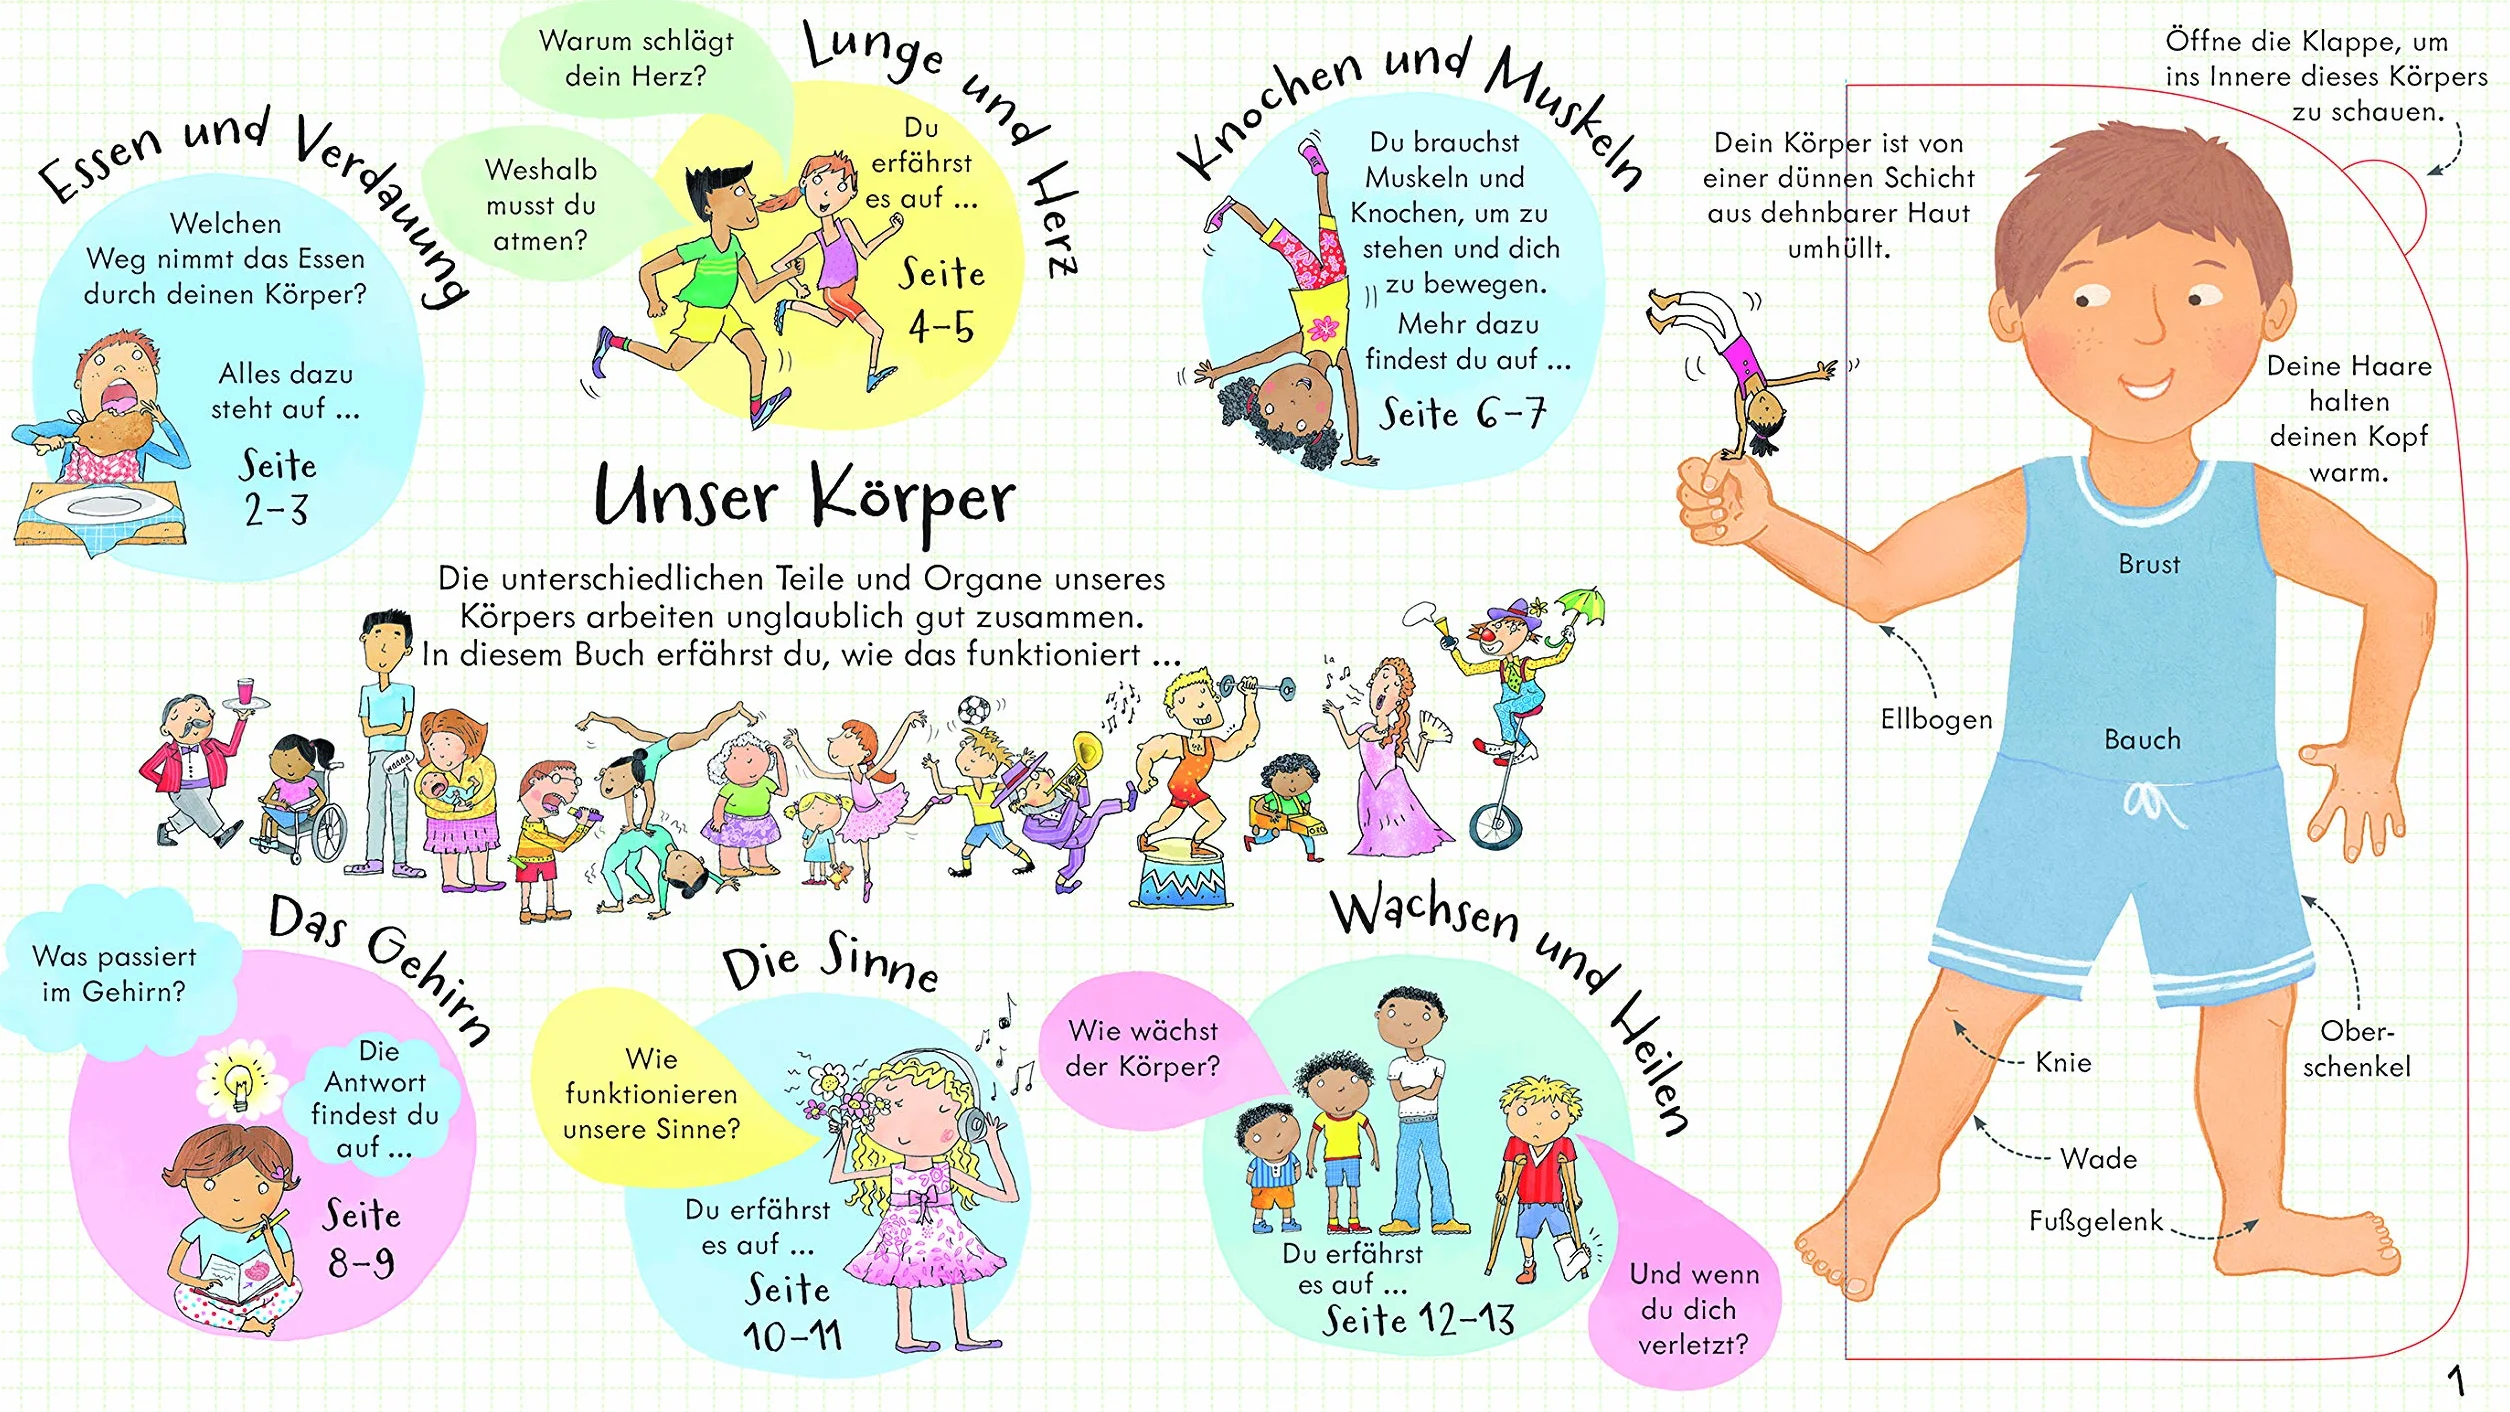 Essen und Verdauung
Welchen
Weg nimmt das Essen
durch deinen Körper?
Alles dazu
steht auf ...
Seite
2–3
Warum schlägt
dein Herz?
Weshalb
musst du
atmen?
Lunge und Herz
Du
erfährst
es auf ...
Seite
4–5
Knochen und Muskeln
Du brauchst
Muskeln und
Knochen, um zu
stehen und dich
zu bewegen.
Mehr dazu
findest du auf ...
Seite 6–7
Unser Körper
Die unterschiedlichen Teile und Organe unseres
Körpers arbeiten unglaublich gut zusammen.
In diesem Buch erfährst du, wie das funktioniert ...
la
Das Gehirn
Was passiert
im Gehirn?
Die
Antwort
findest du
auf ...
Seite
8–9
Die Sinne
Wie
funktionieren
unsere Sinne?
Du erfährst
es auf ...
Seite
10–11
Wachsen und Heilen
Wie wächst
der Körper?
Du erfährst
es auf ...
Seite 12–13
Und wenn
du dich
verletzt?
Öffne die Klappe, um
ins Innere dieses Körpers
zu schauen.
Dein Körper ist von
einer dünnen Schicht
aus dehnbarer Haut
umhüllt.
Deine Haare
halten
deinen Kopf
warm.
Brust
Ellbogen
Bauch
Ober-
schenkel
Knie
Wade
Fußgelenk
1